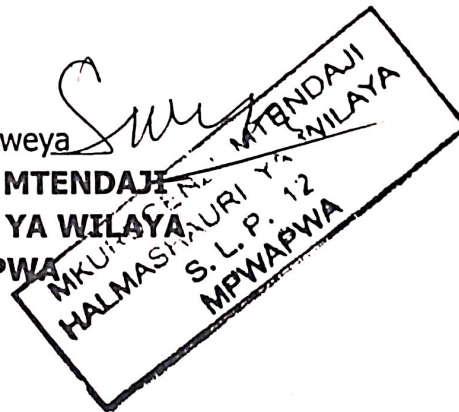 weya
MTENDAJI
YA WILAYA
PWA
MKURUGENZI MTENDAJI
HALMASHAURI YA WILAYA
S. L. P. 12
MPWAPWA